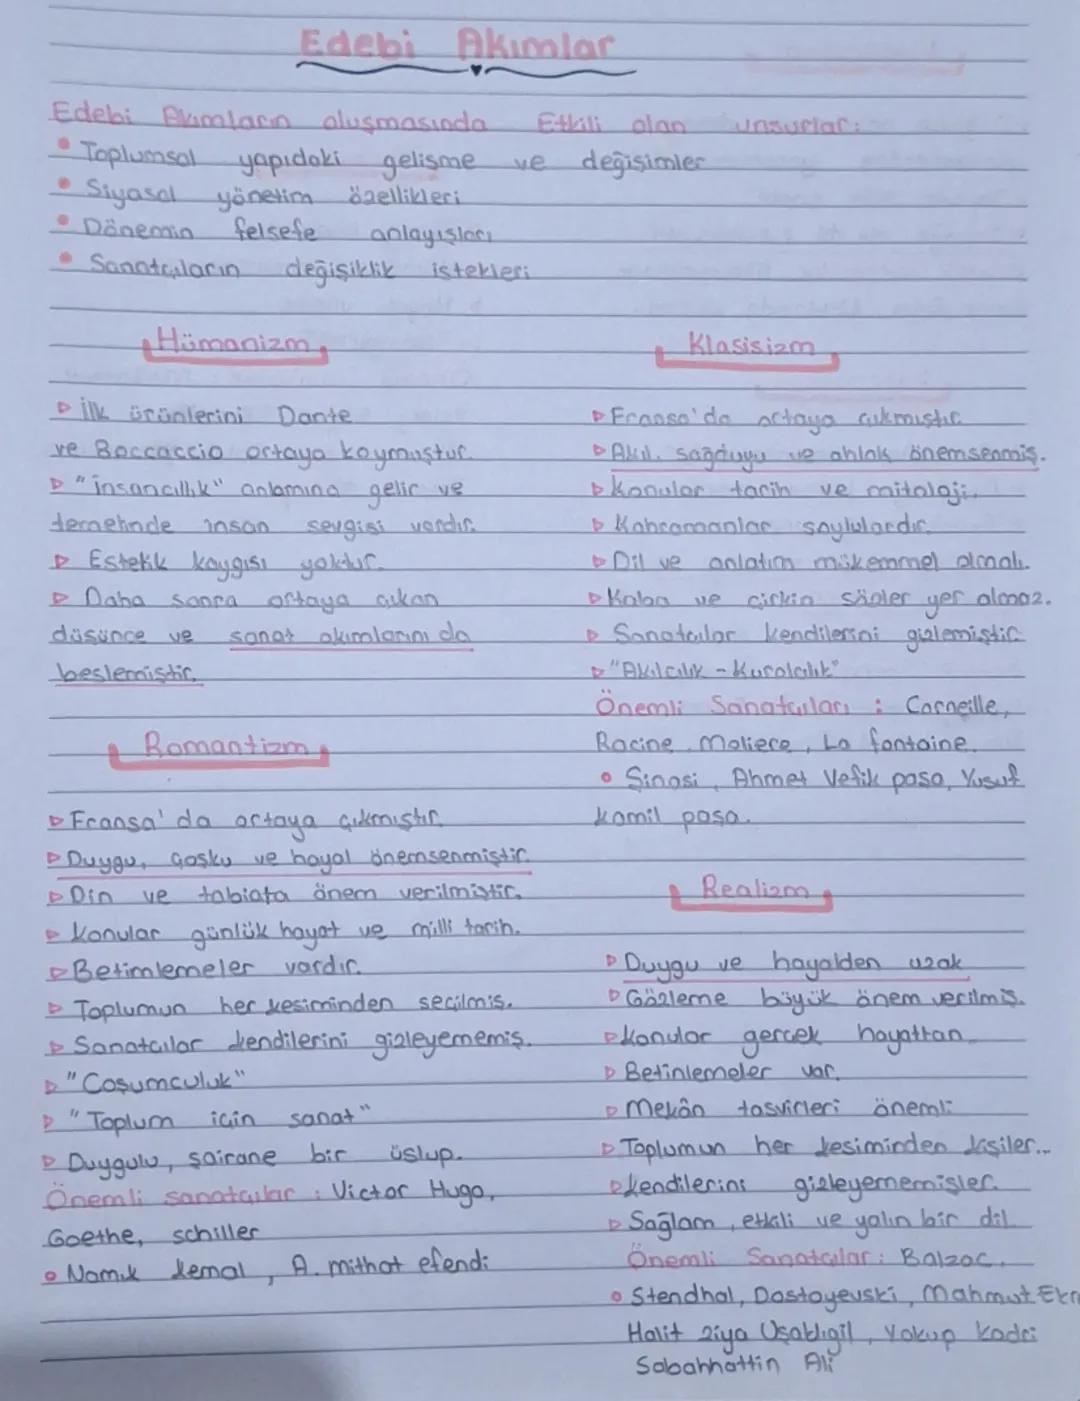 Edebi Akımlar
Edebi Akımların oluşmasında Etkili olan unsurlar:
• Toplumsal yapıdaki gelişme ve değişimler
• Siyasal yönetim özellikleri
• Dönemin felsefe anlayışları
• Sanatçıların değişiklik istekleri
Hümanizm
▷ İlk ürünlerini Dante
ve Boccaccio ortaya koymuştur.
▷ "insancıllık" anlamına gelir ve
temelinde insan sevgisi vardır.
▷ Estetik kaygısı yoktur.
▷ Daha sonra ortaya çıkan
düşünce ve sanat akımlarını da
beslemiştir.
Romantizm
▷ Fransa'da ortaya çıkmıştır.
▷ Duygu, Coşku ve hayal önemsenmiştir.
▷ Din ve tabiata önem verilmiştir.
▷ Konular günlük hayat ve milli tarih.
▷ Betimlemeler vardır.
▷ Toplumun her kesiminden seçilmiş.
▷ Sanatçılar kendilerini gizleyememiş.
▷ "Coşumculuk"
▷ "Toplum için sanat"
▷ Duygulu, şairane bir üslup.
Önemli sanatçılar : Victor Hugo,
Goethe, schiller
• Namık kemal, A. mithat efendi
Klasisizm
▷ Fransa'da ortaya çıkmıştır.
▷ Akıl, sağduyu ve ahlak önemsenmiş.
▷ Konular tarih ve mitoloji.
▷ Kahramanlar soylulardır.
▷ Dil ve anlatım mükemmel olmalı.
▷ Kaba ve çirkin sözler yer almaz.
▷ Sanatçılar kendilerini gizlemiştir
▷ "Akılcılık - Kuralcılık"
Önemli Sanatçıları : Corneille,
Racine, Moliere, La fontaine.
• Şinasi, Ahmet Vefik paşa, Yusuf
kamil paşa.
Realizm
▷ Duygu ve hayalden uzak
▷ Gözleme büyük önem verilmiş.
▷ konular gerçek hayattan
▷ Betinlemeler var.
▷ Mekân tasvirleri önemli
▷ Toplumun her kesiminden kişiler...
▷ kendilerini gizleyememişler.
▷ Sağlam, etkili ve yalın bir dil
Önemli Sanatçılar : Balzac,
• Stendhal, Dostoyevski, Mahmut Ekr
Halit ziya Uşaklıgil, Yakup Kadri
Sabahhattin Ali